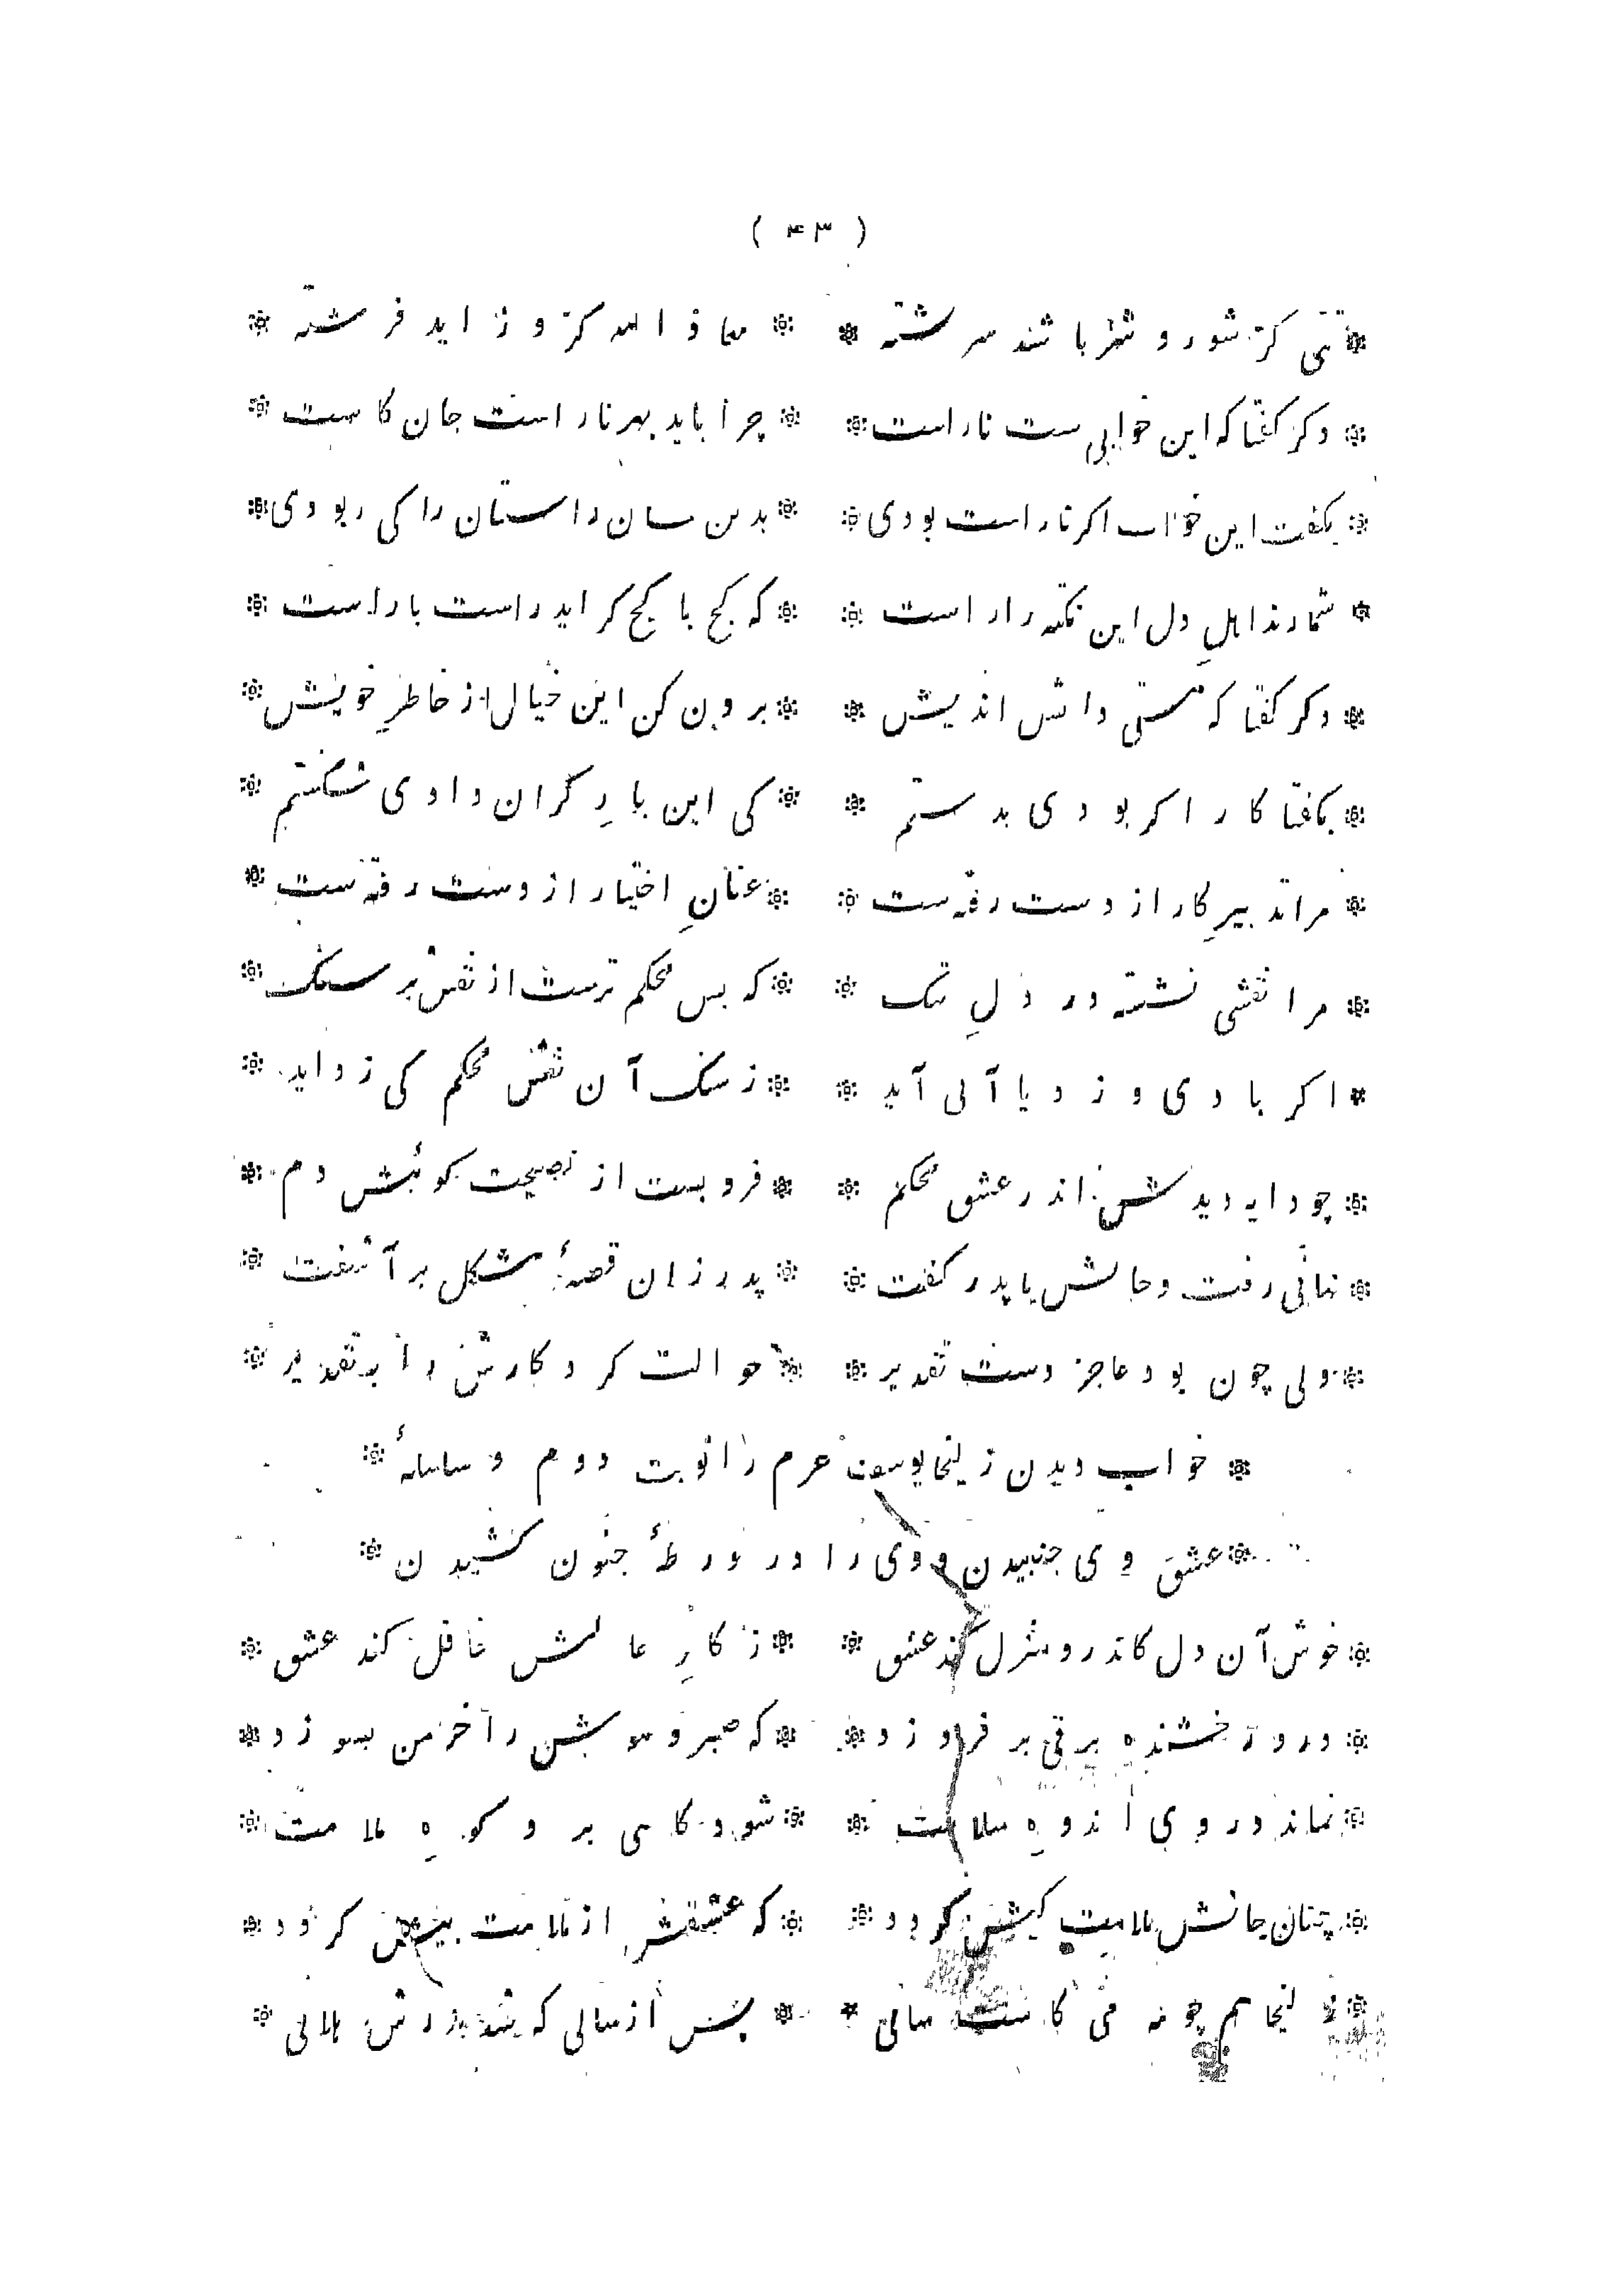 ( ۴۳ )
* تنی کز شور و شر باشد سرشته * * معاذ الله کزو زاید فرشته *
* دکر کفتا که این خوابی ست ناراست * * چرا باید بهر ناراست جان کاست *
* بکفت این خواب اکر ناراست بودی * * بدین سان راستان را کی ربودی *
* شمارند اهلِ دل این نکته را راست * * که کج با کج کراید راست با راست *
* دکر کفتا که هستی دانش اندیش * * برون کن این خیال از خاطرِ خویش *
* بکفتا کار اکر بودی بدستم * * کی این بارِ کران دادی شکستم *
* مرا تدبیرِ کار از دست رفته ست * * عنانِ اختیار از دست رفته ست *
* مرا نقشی نشسته در دلِ تنک * * که بس محکم ترست از نقش بر سنک *
* اکر بادی وزد یا آبی آید * * ز سنک آن نقش محکم کی زداید *
* چو دایه دیدش اندر عشق محکم * * فرو بست از نصیحت کوئیش دم *
* نهانی رفت و حالش با پدر کفت * * پدر زان قصهٔ مشکل بر آشفت *
* ولی چون بود عاجز دست تدبیر * * حوالت کرد کارش را به تقدیر *
* خواب دیدن زلیخا یوسف عرم را نوبت دوم و سلسلهٔ *
* عشق وی جنبیدن و وی را در ورطهٔ جنون کشیدن *
* خوش آن دل کاندرو منزل کند عشق * * ز کارِ عالمش غافل کند عشق *
* درو رخشنده برقی بر فروزد * * که صبر و هوشش را خرمن بسوزد *
* نماند در وی اندوهِ سلامت * * شود کاهی برو کوهِ ملامت *
* چنان جانش ملامت کیش کردد * * که عشقش از ملامت بیش کردد *
* زلیخا همچو مه می کاست سالی * * پس از سالی که شد بدرش هلالی *